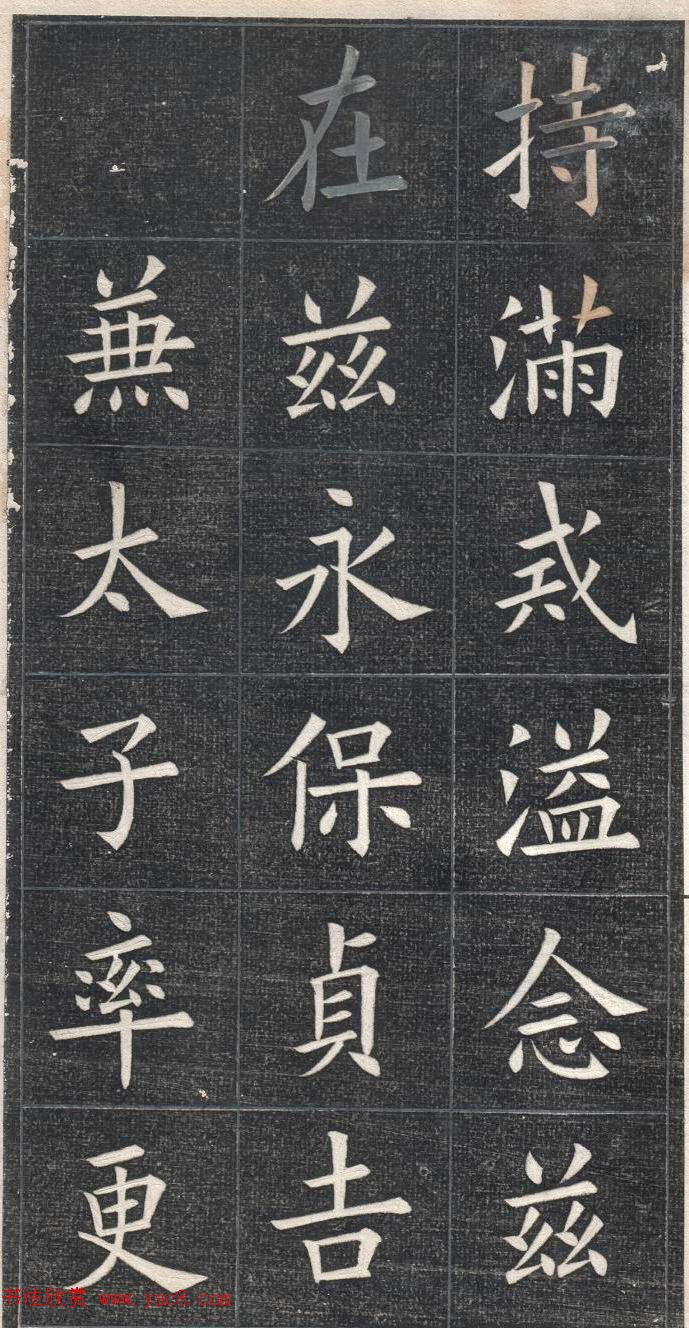 持滿戒溢念兹
在兹永保貞吉
兼太子率更
书法欣赏 www.yac8.com